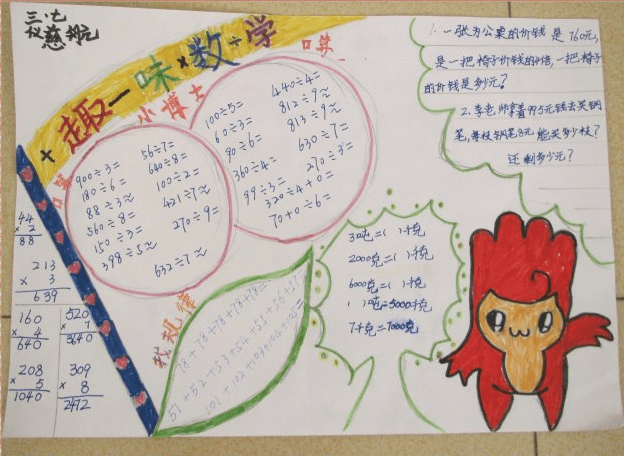 三.七
+趣一味×数÷学
小博士
口算
口算
900÷3=
180÷6=
88÷3≈
560÷8=
150÷3=
398÷5≈
56÷7=
640÷8=
100÷2=
421÷7≈
270÷9=
632÷7≈
100÷5=
60÷3=
90÷6=
360÷4=
99÷3=
320÷4+0=
70+0÷6=
440÷4=
812÷9≈
813÷9≈
630÷7=
270÷3=
1. 一张办公桌的价钱是760元,
是一把椅子价钱的4倍,一把椅子
的价钱是多少元?
2.李老师拿着995元钱去买钢
笔,每枝钢笔8元能买多少枝?
还剩多少元?
3吨=( )千克
2000克=( )千克
6000克=( )千克
( )吨=5000千克
7千克=7000克
找规律
78+78+78+78+78=
51+52+53+54+55+56+57=
101+102+103+104+105=
44
×2
88
213
×3
639
160
×4
640
520
×7
3640
208
×5
1040
309
×8
2472